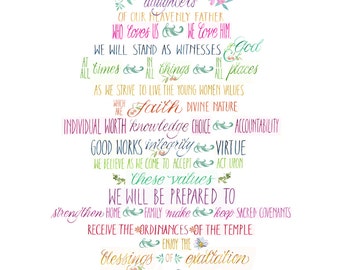 daughters
OF OUR HEAVENLY FATHER
WHO LOVES US & WE LOVE HIM.
WE WILL STAND AS WITNESSES of God
AT ALL times & IN ALL things & IN ALL places
AS WE STRIVE TO LIVE THE YOUNG WOMEN VALUES
WHICH ARE faith DIVINE NATURE
INDIVIDUAL WORTH knowledge CHOICE & ACCOUNTABILITY
GOOD WORKS integrity & VIRTUE
WE BELIEVE AS WE COME TO ACCEPT & ACT UPON
these values
WE WILL BE PREPARED TO
strengthen HOME & FAMILY make & keep SACRED COVENANTS
RECEIVE THE ORDINANCES OF THE TEMPLE
& ENJOY THE
blessings OF exaltation